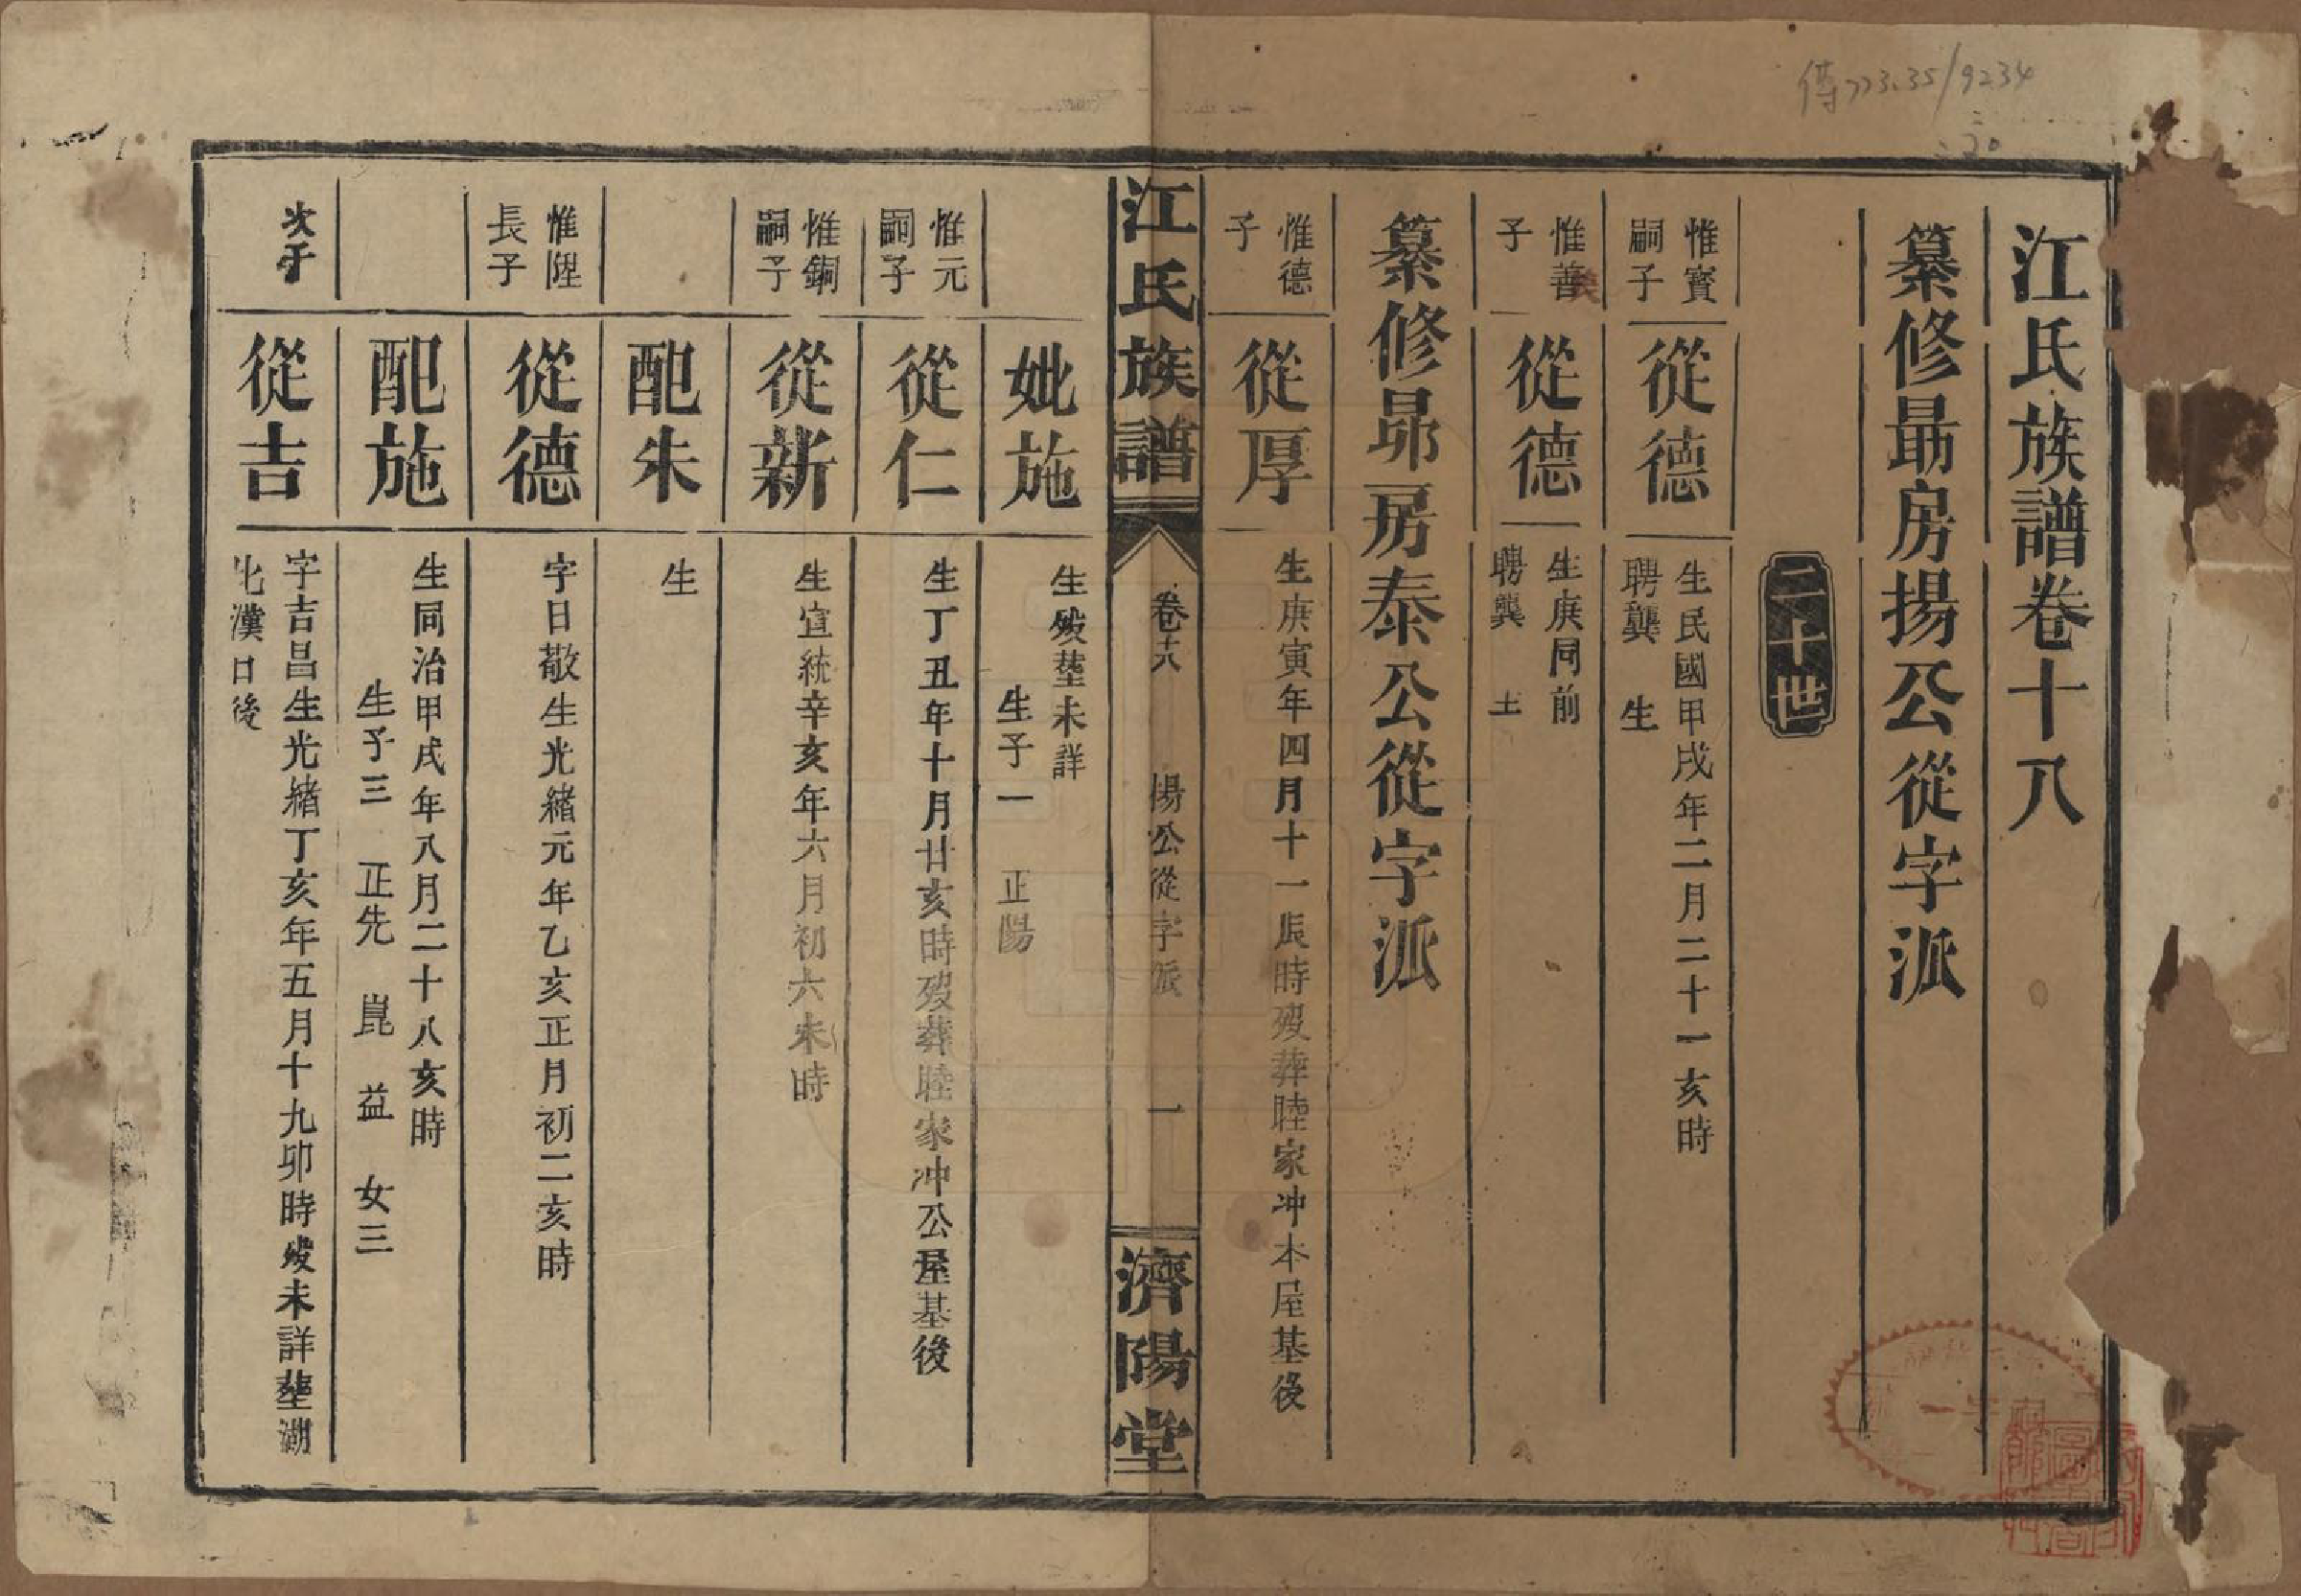 傳773.35/9234
江氏族譜卷十八
纂修最房揚公從字派
二十世
惟寶
嗣子
從德
生民國甲戌年二月二十一亥時
聘龔　生
惟善
子
從德
生庚同前
聘龔
纂修昴房泰公從字派
惟德
子
從厚
生庚寅年四月十一辰時歿葬睦家冲本屋基後
江氏族譜
卷十八
揚公從字派
一
濟陽堂
妣施
生歿塟未詳
生子一　正陽
惟元
嗣子
從仁
生丁丑年十月廿亥時歿葬睦家冲公屋基後
惟銅
嗣子
從新
生宣統辛亥年六月初六未時
配朱
生
惟陞
長子
從德
字日敬生光緒元年乙亥正月初二亥時
配施
生同治甲戌年八月二十八亥時
生子三　正先　崑　益　女三
次子
從吉
字吉昌生光緒丁亥年五月十九卯時歿未詳塟湖
北漢口後